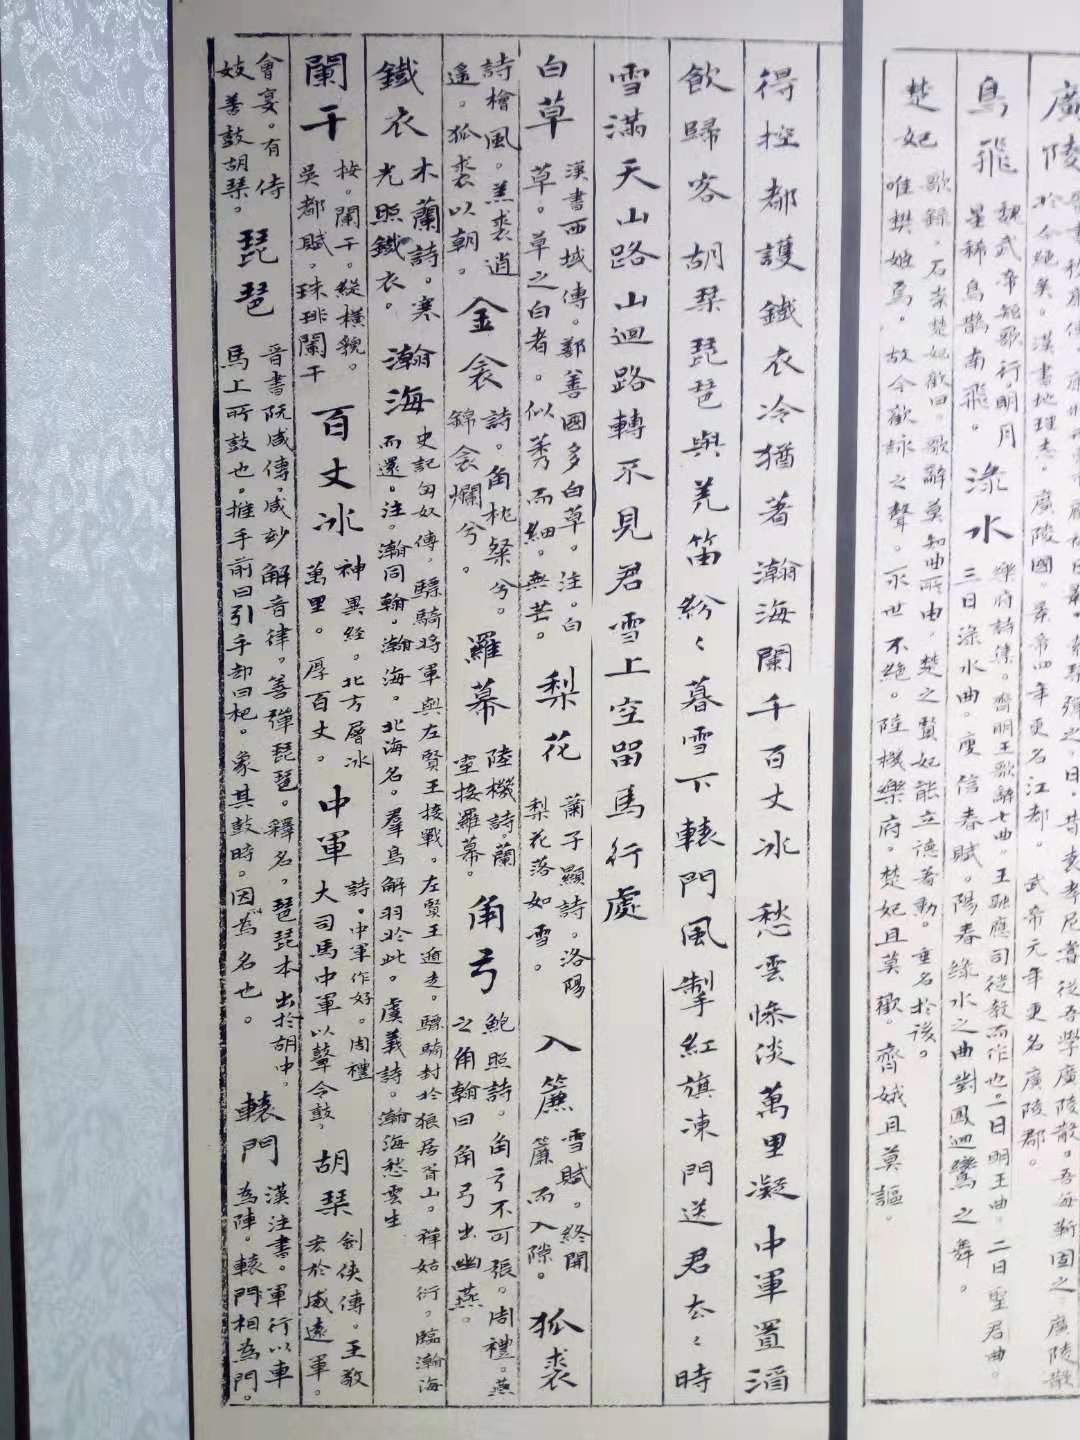 廣陵
於今絕矣。漢書地理志。廣陵國。景帝四年更名江都。武帝元年更名廣陵郡。
鳥飛
魏武帝短歌行。明月
星稀烏鵲南飛。
淥水
樂府詩集。齊明王歌辭七曲。王融應司徒教而作也。一日明王曲。二日聖君曲。
三日淥水曲。庾信春賦。陽春綠水之曲對鳳迴鸞之舞。
楚妃
歌錄。石崇楚妃歎曰。歌辭莫知曲所由。楚之賢妃能立德著勳。垂名於後。
唯樊姬焉。故今歎詠之聲。永世不絕。陸機樂府。楚妃且莫歎。齊娥且莫謳。
得控都護鐵衣冷猶著瀚海闌干百丈冰愁雲慘淡萬里凝中軍置酒
飲歸客胡琴琵琶與羌笛紛々暮雪下轅門風掣紅旗凍門送君去々時
雪滿天山路山迴路轉不見君雪上空留馬行處
白草
漢書西域傳。鄯善國多白草。注。白
草。草之白者。似莠而細。無芒。
梨花
蕭子顯詩。洛陽
梨花落如雪。
入簾
雪賦。終開
簾而入隙。
狐裘
詩檜風。羔裘逍
遙。狐裘以朝。
金衾
詩。角枕粲兮。
錦衾爛兮。
羅幕
陸機詩。蘭
室接羅幕。
角弓
鮑照詩。角弓不可張。周禮。燕
之角翰曰角弓出幽燕。
鐵衣
木蘭詩。寒
光照鐵衣。
瀚海
史記匈奴傳。驃騎將軍與左賢王接戰。左賢王遁走。驃騎封於狼居胥山。禪姑衍。臨瀚海
而還。注。瀚同翰。瀚海。北海名。羣鳥解羽於此。虞羲詩。瀚海愁雲生
闌干
按。闌干。縱橫貌。
吳都賦。珠琲闌干
百丈冰
神異經。北方層冰
萬里。厚百丈。
中軍
詩。中軍作好。周禮
大司馬中軍以鼙令鼓。
胡琴
劍俠傳。王敬
宏於威遠軍。
會宴。有侍
妓善鼓胡琴。
琵琶
晉書阮咸傳。咸妙解音律。善彈琵琶。釋名。琵琶本出於胡中。
馬上所鼓也。推手前曰引手却曰杷。象其鼓時。因為名也。
轅門
漢注書。軍行以車
為陣。轅門相為門。